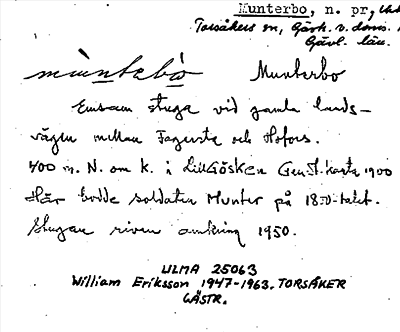 Munterbo, n. pr,
Torsåkers sn, Gästr. v. doms.
Gävl. län.
muntebo Munterbo
Ensam stuga vid gamla lands-
vägen mellan Fagersta och Hofors.
400 m. N. om k. i LillGösken Gen.st.karta 1900
Här bodde soldaten Munter på 1800-talet.
Stugan riven omkring 1950.
ULMA 25063
William Eriksson 1947-1963. TORSÅKER
GÄSTR.